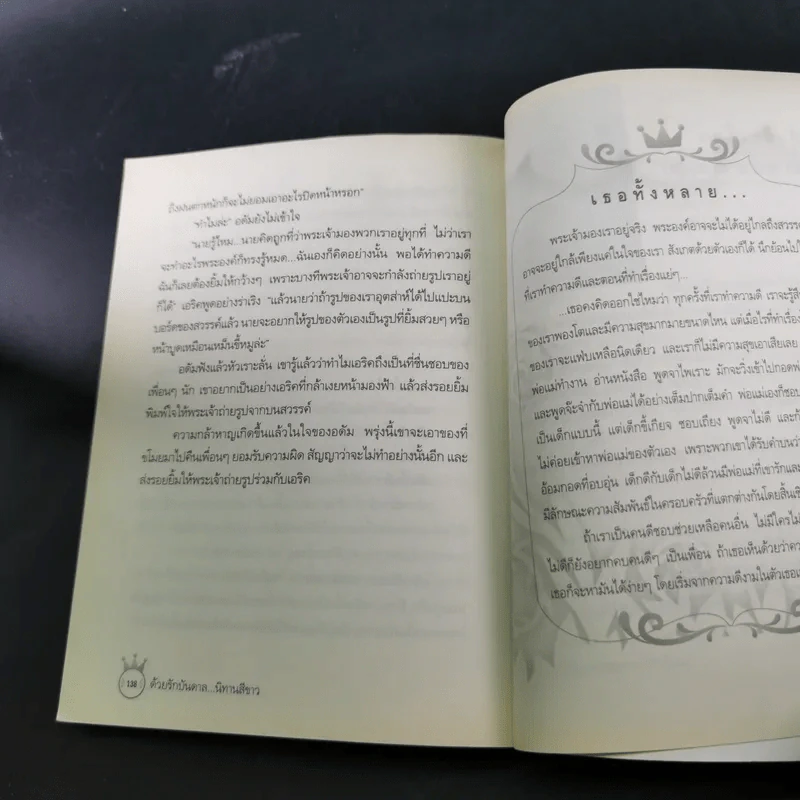 ถึงฝนตกหนักก็จะไม่ยอมเอาอะไรปิดหน้าหรอก"
"ทำไมล่ะ" อดัมยังไม่เข้าใจ
"นายรู้ไหม...นายคิดถูกที่ว่าพระเจ้ามองพวกเราอยู่ทุกที่ ไม่ว่าเรา
จะทำอะไรพระองค์ก็ทรงรู้หมด...ฉันเองก็คิดอย่างนั้น พอได้ทำความดี
ฉันก็เลยต้องยิ้มให้กว้างๆ เพราะบางทีพระเจ้าอาจจะกำลังถ่ายรูปเราอยู่
ก็ได้" เอริคพูดอย่างร่าเริง "แล้วนายว่าถ้ารูปของเราอุตส่าห์ได้ไปแปะบน
บอร์ดของสวรรค์แล้ว นายจะอยากให้รูปของตัวเองเป็นรูปที่ยิ้มสวยๆ หรือ
หน้าบูดเหมือนเหม็นขี้หมูล่ะ"
อดัมฟังแล้วหัวเราะลั่น เขารู้แล้วว่าทำไมเอริคถึงเป็นที่ชื่นชอบของ
เพื่อนๆ นัก เขาอยากเป็นอย่างเอริคที่กล้าเงยหน้ามองฟ้า แล้วส่งรอยยิ้ม
พิมพ์ใจให้พระเจ้าถ่ายรูปจากบนสวรรค์
ความกล้าหาญเกิดขึ้นแล้วในใจของอดัม พรุ่งนี้เขาจะเอาของที่
ขโมยมาไปคืนเพื่อนๆ ยอมรับความผิด สัญญาว่าจะไม่ทำอย่างนั้นอีก และ
ส่งรอยยิ้มให้พระเจ้าถ่ายรูปร่วมกับเอริค
138 ด้วยรักบันดาล...นิทานสีขาว
เธอทั้งหลาย...
พระเจ้ามองเราอยู่จริง พระองค์อาจจะไม่ได้อยู่ไกลถึงสวรรค์
อาจจะอยู่ใกล้เพียงแค่ในใจของเรา สังเกตด้วยตัวเองก็ได้ นึกย้อนไป
ที่เราทำความดีและตอนที่ทำเรื่องแย่ๆ...
...เธอคงคิดออกใช่ไหมว่า ทุกครั้งที่เราทำความดี เราจะรู้สึก
ของเราพองโตและมีความสุขมากมายขนาดไหน แต่เมื่อไรที่ทำเรื่อง
ของเราจะแฟบเหลือนิดเดียว และเราก็ไม่มีความสุขเอาเสียเลย
พ่อแม่ทำงาน อ่านหนังสือ พูดจาไพเราะ มักจะวิ่งเข้าไปกอดพ่
และพูดจ๊ะจ๋ากับพ่อแม่ได้อย่างเต็มปากเต็มคำ พ่อแม่เองก็ชอบ
เป็นเด็กแบบนี้ แต่เด็กขี้เกียจ ชอบเถียง พูดจาไม่ดี และก้
ไม่ค่อยเข้าหาพ่อแม่ของตัวเอง เพราะพวกเขาได้รับคำบ่นว่
อ้อมกอดที่อบอุ่น เด็กดีกับเด็กไม่ดีล้วนมีพ่อแม่ที่เขารักและ
มีลักษณะความสัมพันธ์ในครอบครัวที่แตกต่างกันโดยสิ้นเชิ
ถ้าเราเป็นคนดีชอบช่วยเหลือคนอื่น ไม่มีใครไม่
ไม่ดีก็ยังอยากคบคนดีๆ เป็นเพื่อน ถ้าเธอเห็นด้วยว่าคว
เธอก็จะหามันได้ง่ายๆ โดยเริ่มจากความดีงามในตัวเธอเ